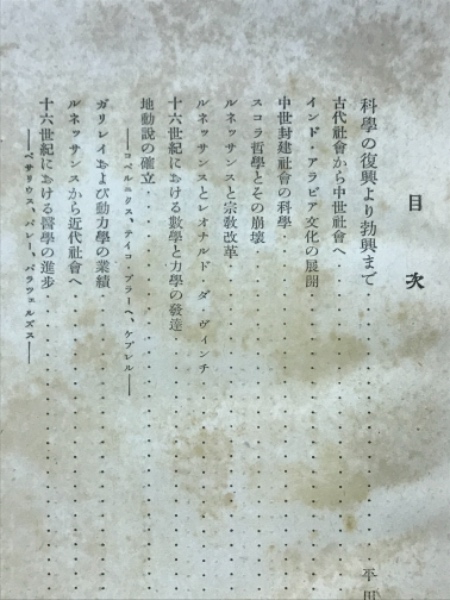 目次
科學の復興より勃興まで 平田
古代社會から中世社會へ
インド・アラビア文化の展開
中世封建社會の科學
スコラ哲學とその崩壞
ルネッサンスと宗敎改革
ルネッサンスとレオナルド・ダ・ヴィンチ
十六世紀における數學と力學の發達
地動說の確立
――コペルニクス、テイコ・ブラーヘ、ケプレル――
ガリレイおよび動力學の業績
ルネッサンスから近代社會へ
十六世紀における醫學の進步
――ベサリウス、パレー、パラツェルズス――